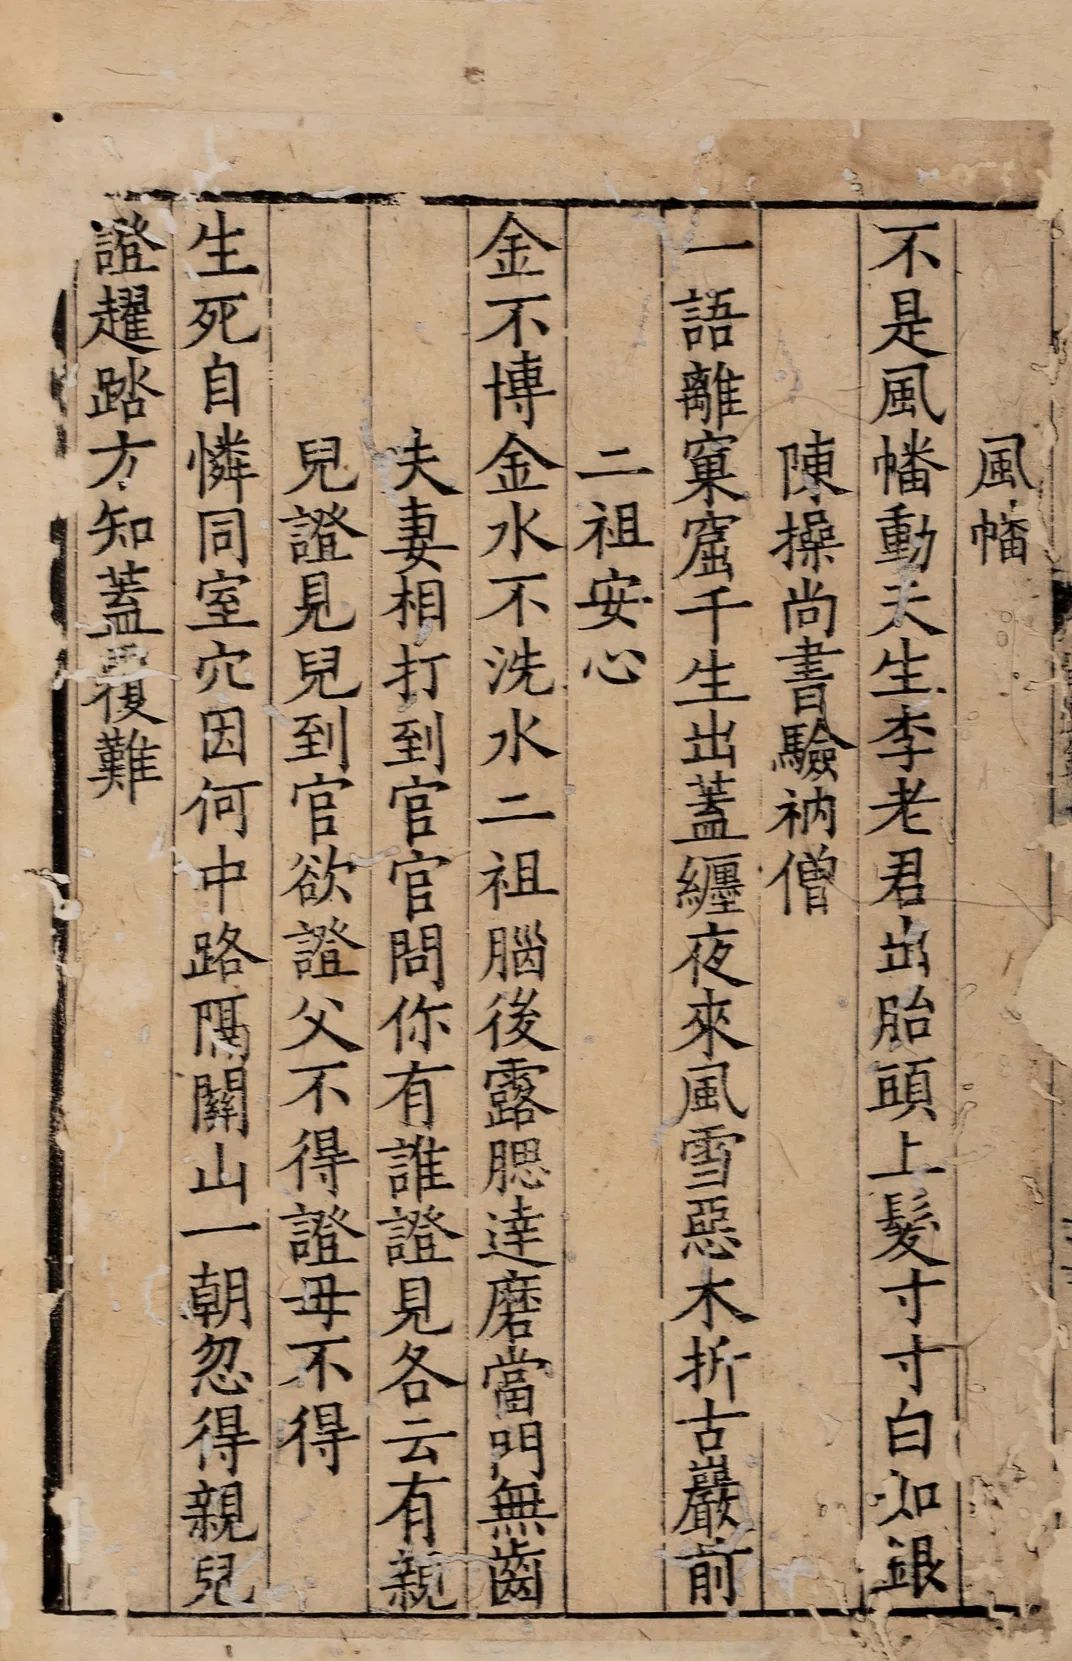 風幡
不是風幡動天生李老君出胎頭上髮寸寸白如銀
陳操尚書驗衲僧
一語離窠窟千生出蓋纏夜來風雪惡木折古巖前
二祖安心
金不博金水不洗水二祖腦後露腮達磨當門無齒
夫妻相打到官官問你有誰證見各云有親
兒證見兒到官欲證父不得證母不得
生死自憐同室穴因何中路隔關山一朝忽得親兒
證趯踏方知蓋覆難